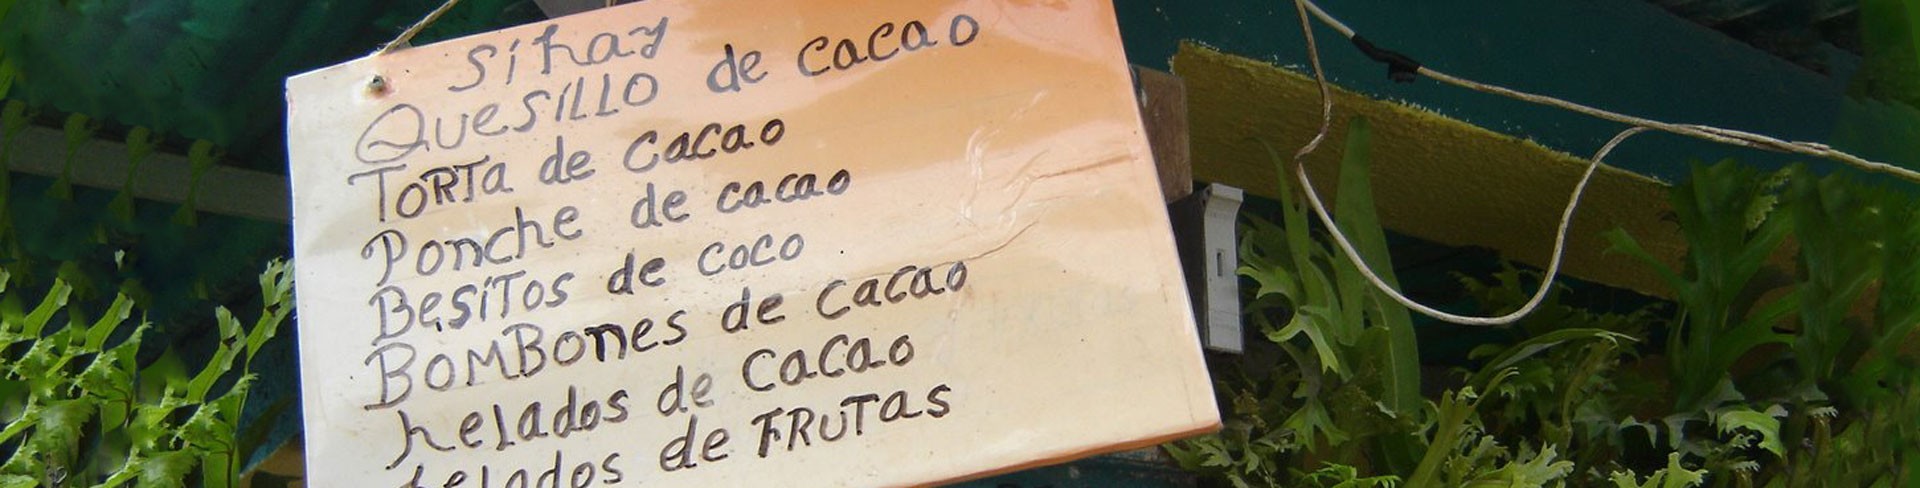 Si hay
Quesillo de cacao
Torta de cacao
Ponche de cacao
Besitos de coco
Bombones de cacao
helados de cacao
helados de Frutas